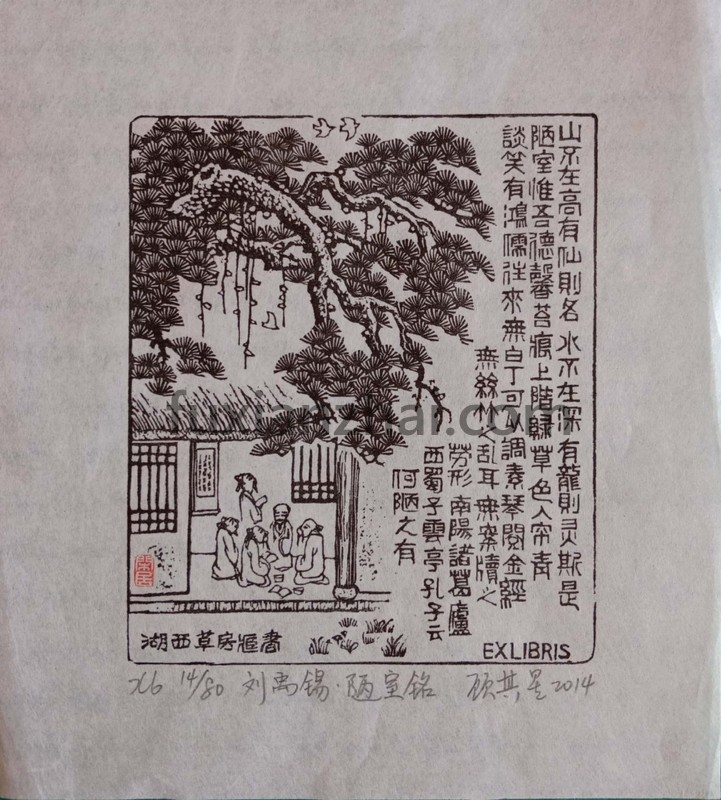 山不在高有仙則名 水不在深有龍則灵斯是
陋室惟吾德馨苔痕上階緑草色入帘青
談笑有鴻儒往來無白丁可以調素琴閲金經
無絲竹之乱耳無案牘之
劳形 南陽諸葛廬
西蜀子雲亭孔子云
何陋之有
湖西草房藏書
EXLIBRIS
X6 14/80 刘禹锡·陋室铭 顾其星 2014
fuxianzhai.com